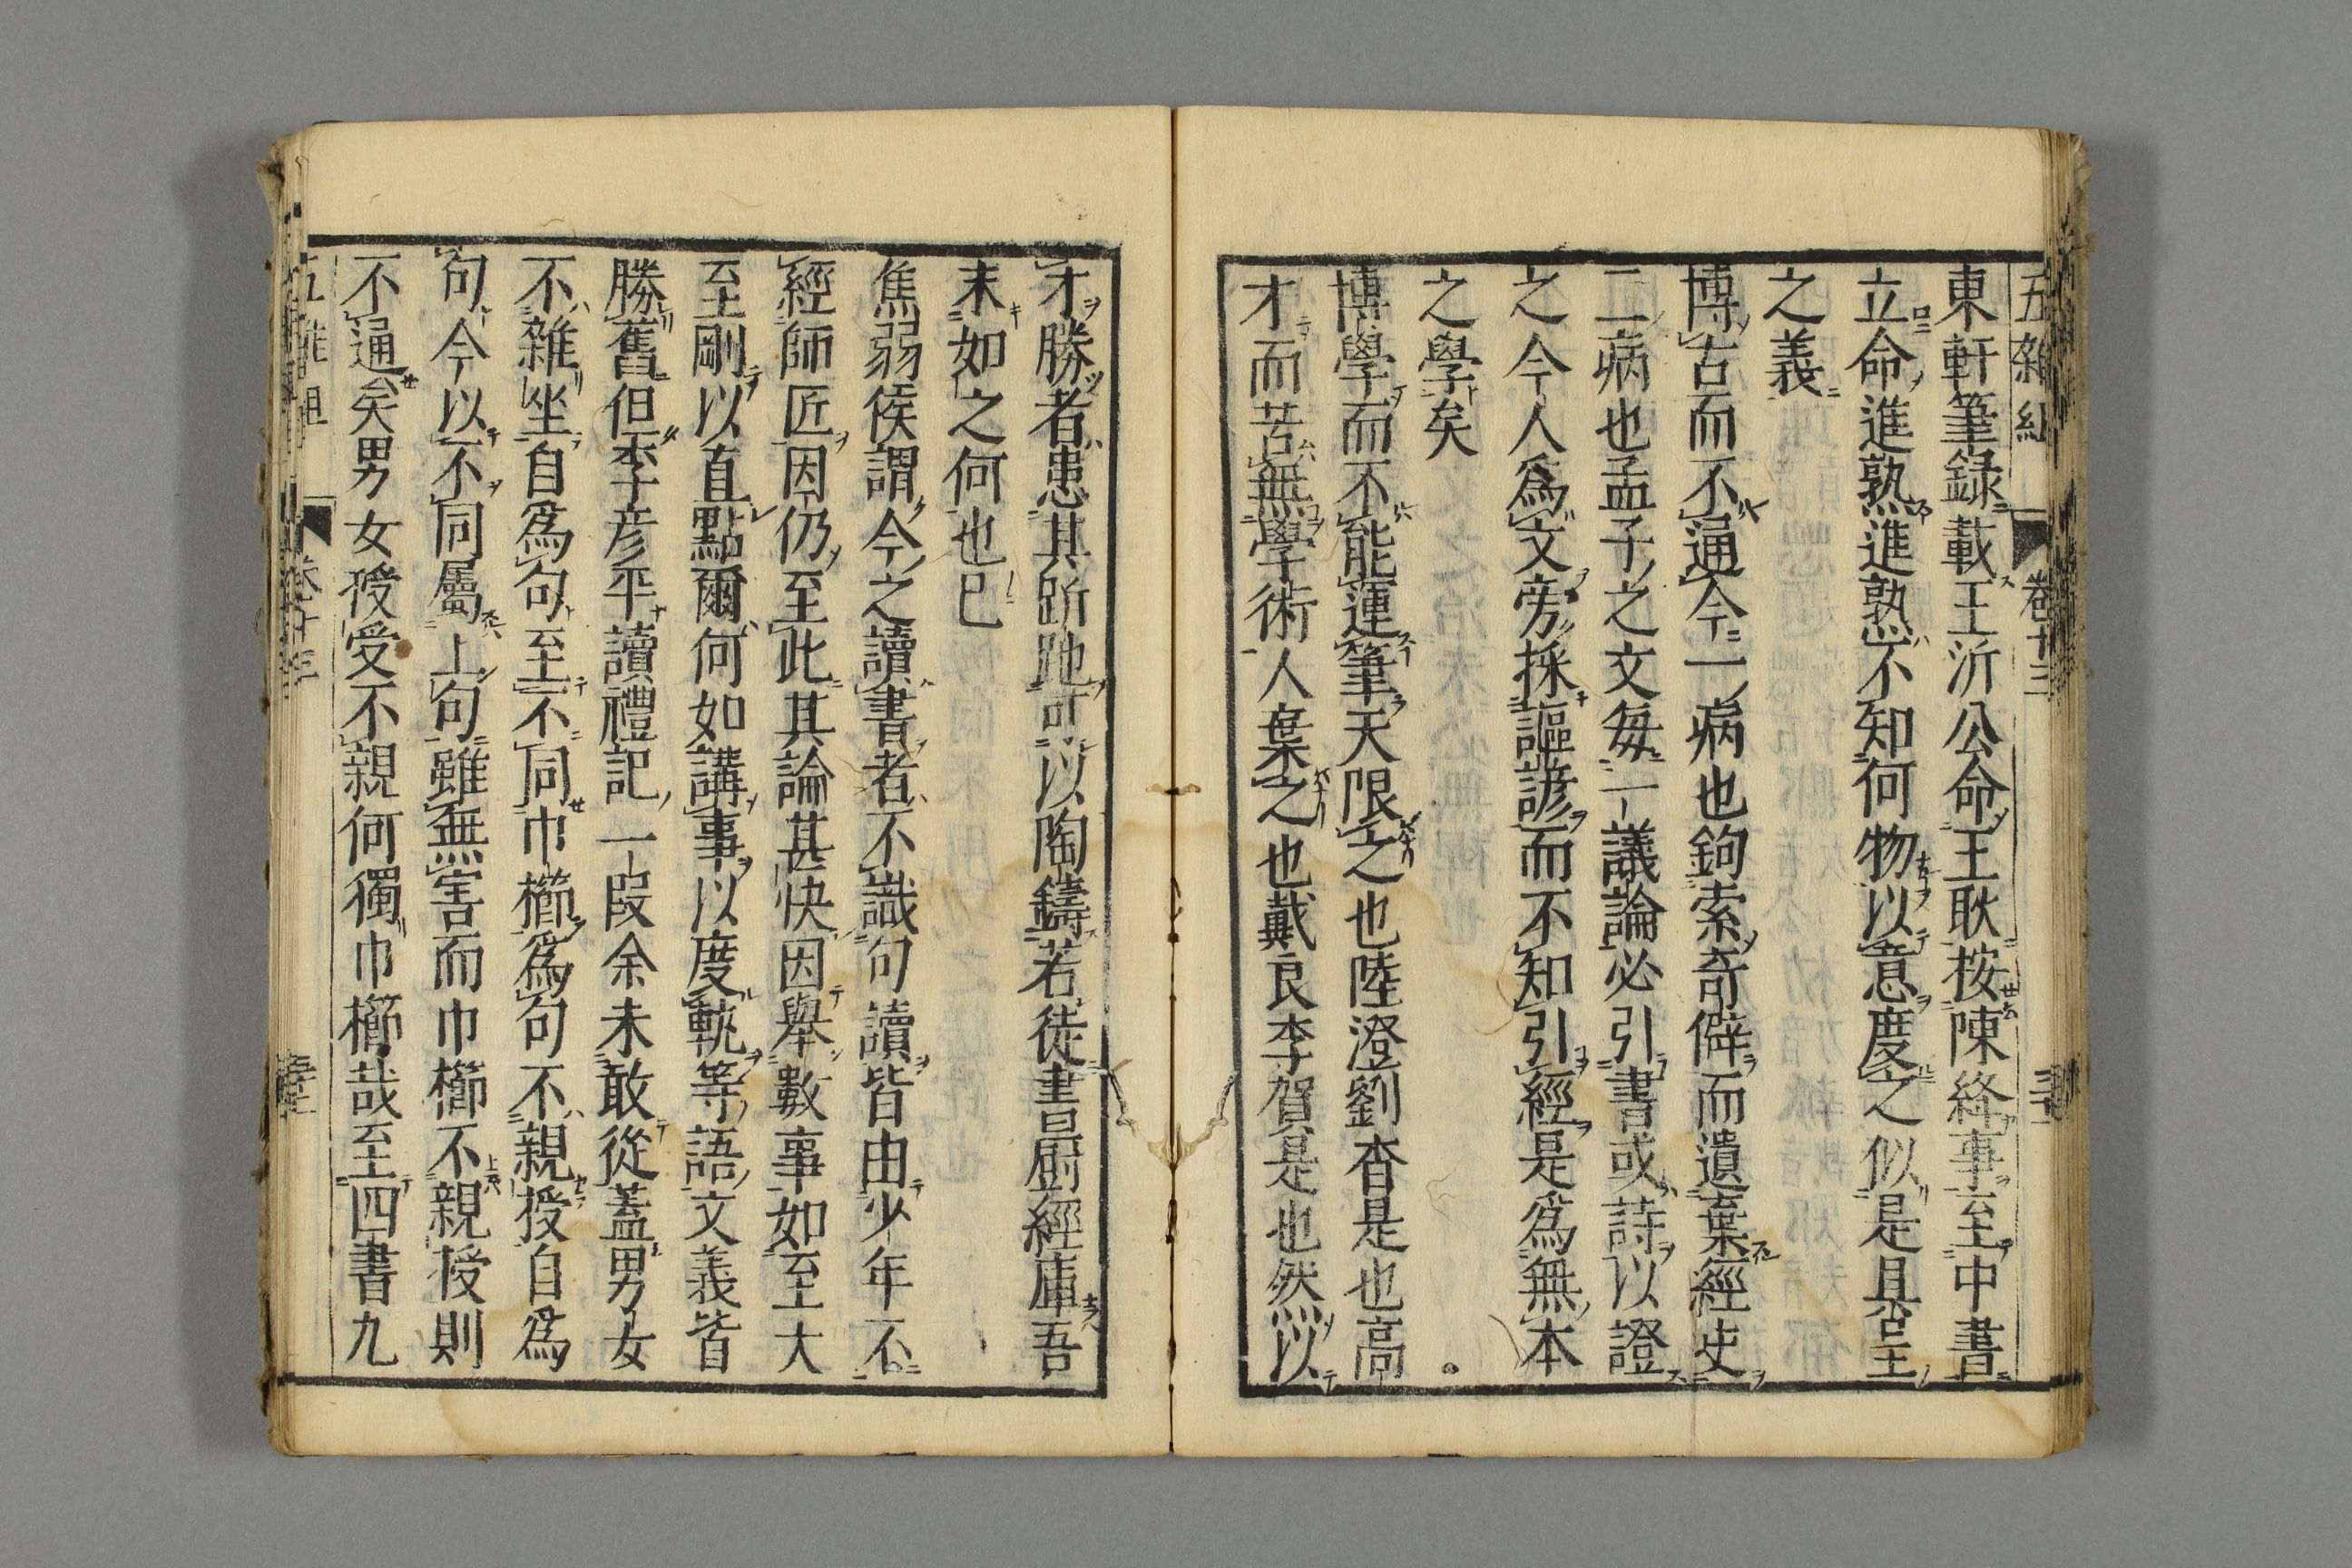 五雜組 卷十三
東軒筆録載王沂公命王耿按陳絳事至中書
立命進熟進熟不知何物以意度之似是具呈
之義
博古而不通今一病也鉤索奇僻而遺棄經史
二病也孟子之文每一議論必引書或詩以證
之今人爲文旁採謳諺而不知引經是爲無本
之學矣
博學而不能運筆天限之也陸澄劉杳是也高
才而苦無學術人棄之也戴良李賀是也然以
才勝者患其跅跎可以陶鑄若徒書厨經庫吾
末如之何也已
焦弱侯謂今之讀書者不識句讀皆由少年不
經師匠因仍至此其論甚快因舉數事如至大
至剛以直點爾何如講事以度軌等語文義皆
勝舊但李彦平讀禮記一段余未敢從蓋男女
不雜坐自爲句至不同巾櫛爲句不親授自爲
句今以不同屬上句雖無害而巾櫛不親授則
不通矣男女授受不親何獨巾櫛哉至四書九